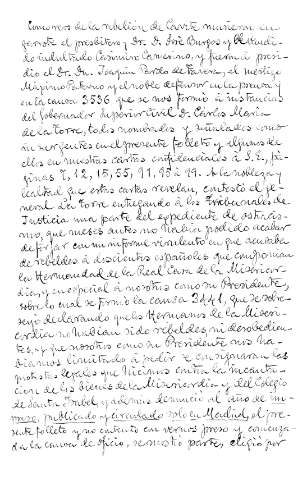 de la rebelión de Cavite murieron en
garrote el presbítero y Dr. D. José Burgos y el
indultado Casimiro Camerino, y fueron á presi-
dio el Dr. Dn. Joaquin Pardo de Tavera, el mestizo
Máximo Paterno y el noble defensor en la prensa y
en la causa 3556 que se nos formó á instancias
del Gobernador Superior Civil D. Carlos María
de la Torre, todos nombrados y señalados como
en el presente folleto y algunos de
ellos en nuestras cartas confidenciales á S. E., pá-
ginas 7, 12, 15, 55, 77, 95 á 99. A la nobleza y
lealtad que estas cartas revelan, contestó el Je-
neral La Torre entregando á los Tribunales de
Justicia una parte del espediente de ostracis-
mo, que meses antes no habia podido acabar
de forjar con un informe virulento en que acusaba
de rebeldes á doscientos españoles que componian
la Hermandad de la Real Casa de la Misericor-
dia, y en especial á nosotros como su Presidente,
sobre lo cual se formó la causa 3441, que se sobre-
seyó declarando que los Hermanos de la Miseri-
cordia no habian sido rebeldes, ni desobedien-
tes, y que nosotros como su Presidente nos ha-
biamos limitado á pedir se consignaran las
protestas legales que hicimos contra la incauta-
cion de los bienes de la Misericordia y del Colegio
de Santa Isabel, y además denunció al año de im-
preso, publicado y circulado solo en Madrid, el pre-
sente folleto y no contento con vernos preso y comenza-
da la causa de oficio, se mostró parte, eligió por